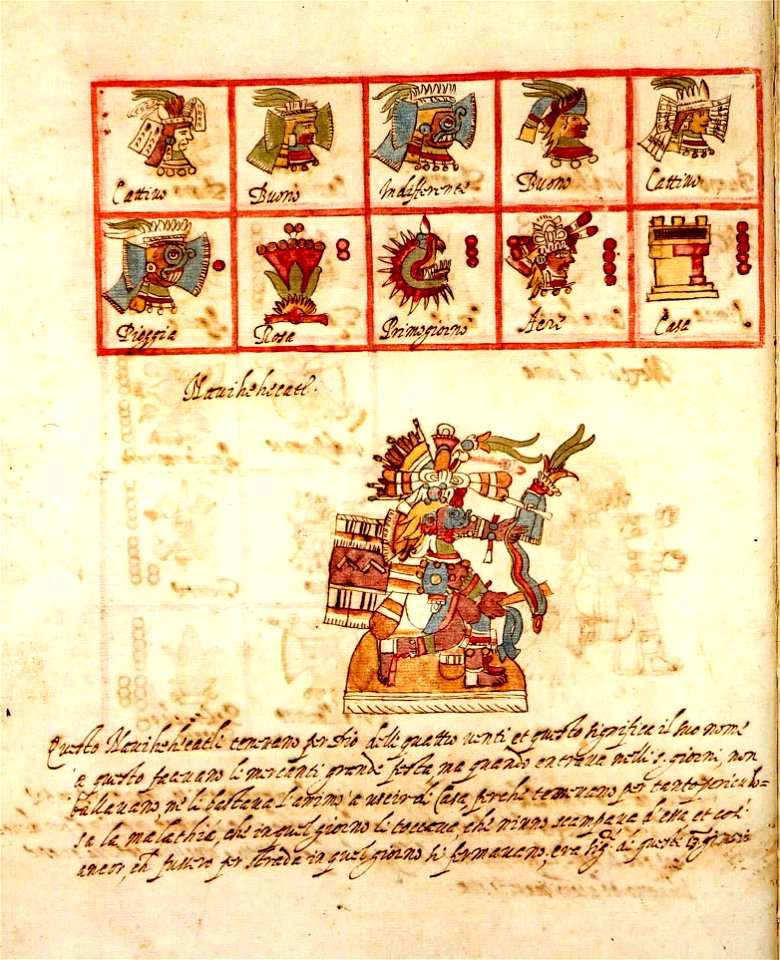 Cattivo Buono Indiferente Buono Cattivo
Pioggia Rosa Primogiorno Aere Casa
Navihehecatl.
Questo Navihehecatle tenevano per dio delli quattro venti et questo significa il suo nome
a questo facevano li mercanti grande festa, ma quando entrava nelli giorni, non
ballavano, ne li bastava l'animo a uscir di casa perche temevano per tanto pericolo-
sa la malathia, che in quel giorno li toccava, che niuno scampava d'essa et cosi
ancor, ch fussero per strada in quel giorno si fermavano, era di questi giorni